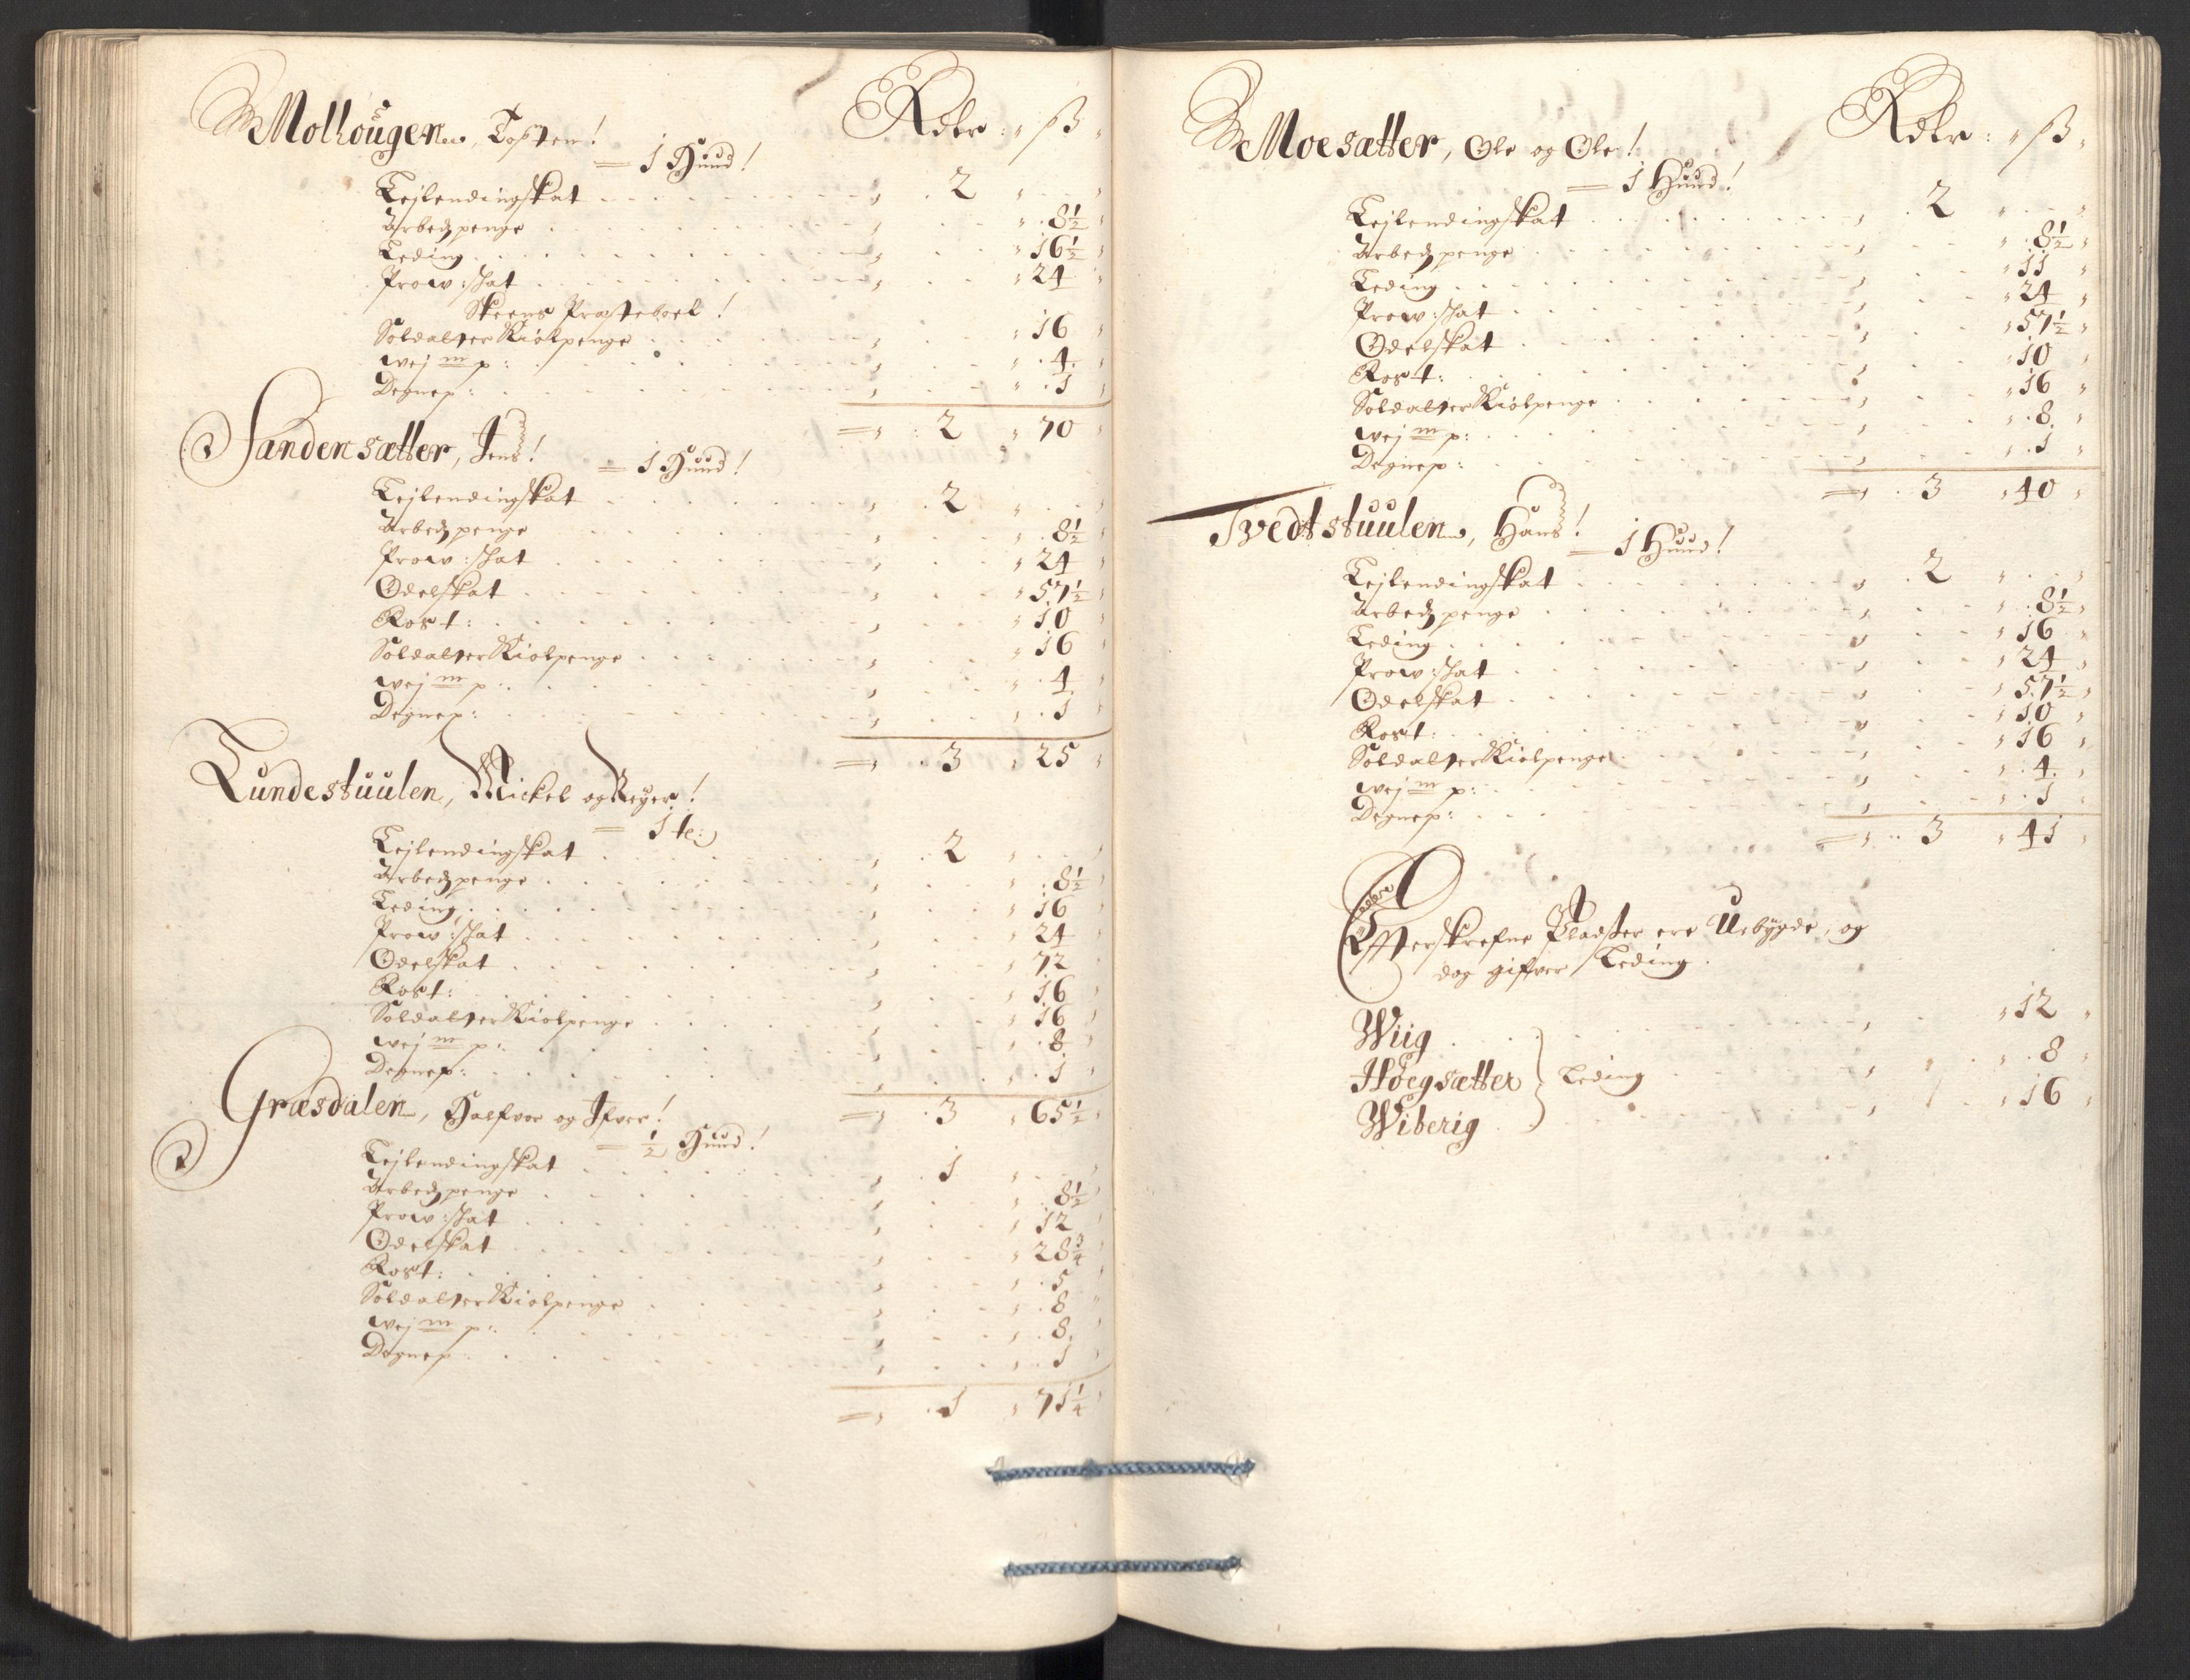 Rdlr: ß
Mollougen, Tosten!
= 1 Huud!
Leylendingskat 2
Arbedzpenge 8½
Leding 16½
Prow: skat 24
Skeens Præsteboel!
Soldatter Kiolpenge 16
wej m p: 4
Degnep: 1
= 2 70
Sandensætter, Jens!
= 1 Huud!
Leylendingskat 2
Arbedzpenge 8½
Prow: skat 24
Odelskat 57½
Rost: 10
Soldatter Kiolpenge 16
wej m p: 4
Degnep: 1
= 3 25
Lundestuulen, Mickel og Reyer!
= 1 te:
Leylendingskat 2
Arbedzpenge 8½
Leding 16
Prow: skat 24
Odelskat 72
Rost: 16
Soldatter Kiolpenge 16
wej m p: 8
Degnep: 1
= 3 65½
Græsdalen, Halfvor og Ifver!
= ½ Huud!
Leylendingskat 1
Arbedzpenge 8½
Prow: skat 12
Odelskat 28¾
Rost: 5
Soldatter Kiolpenge 8
wej m p: 8
Degnep: 1
= 1 71¼
Rdlr: ß
Moesætter, Ole og Ole!
= 1 Huud!
Leylendingskat 2
Arbedzpenge 8½
Leding 11
Prow: skat 24
Odelskat 57½
Rost: 10
Soldatter Kiolpenge 16
wej m p: 8
Degnep: 1
= 3 40
Tvedtstuulen, Hans!
= 1 Huud!
Leylendingskat 2
Arbedzpenge 8½
Leding 16
Prow: skat 24
Odelskat 57½
Rost: 10
Soldatter Kiolpenge 16
wej m p: 4
Degnep: 1
= 3 41
Effterskrefne Pladster ere Ubygde, og
dog gifver Leding.
Wiig 12
Höegsætter Leding 8
Wiberig 16